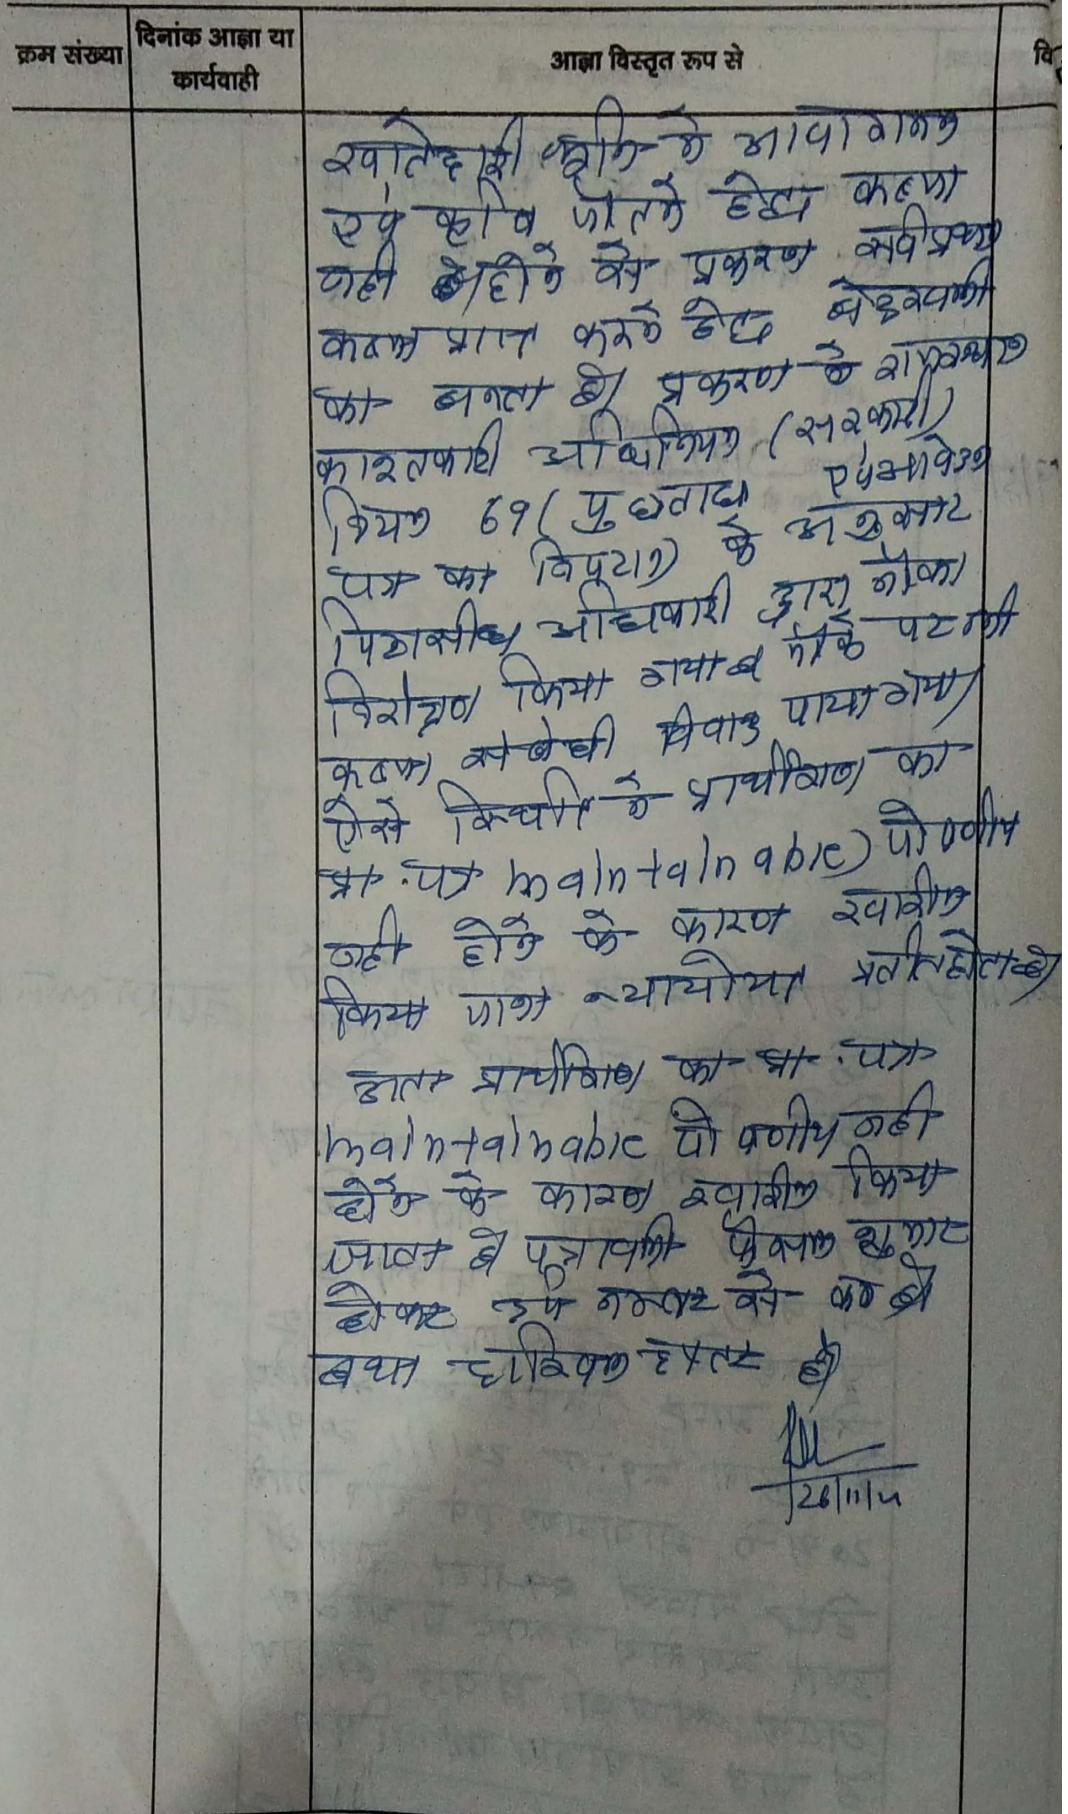 क्रम संख्या
दिनांक आज्ञा या
कार्यवाही
आज्ञा विस्तृत रूप से
वि
खातेदारी भूमि मे आवागमन
एवं कृषि जोतने हेतु कब्जा
नही होने से प्रकरण सर्वप्रथम
कब्जा प्राप्त करने हेतु बेदखली
का बनता है। प्रकरण मे राजस्थान
काश्तकारी अधिनियम (सरकारी)
नियम 69 ( पुछताछ एवं आवेदन
पत्र का निपटान) के अनुसार
पिठासीन अधिकारी द्वारा मौका
निरीक्षण किया गया व मौके पर भी
कब्जा संबंधी विवाद पाया गया।
ऐसे स्थिति मे प्रार्थीगण का
प्रा. पत्र maintainable) पोषणीय
नही होने के कारण खारीज
किया जाना प्रतीत होता है।
अतः प्रार्थीगण का प्रा. पत्र
maintainable पोषणीय नही
होने के कारण खारीज किया
जाता है पत्रावली फैसल शुमार
होकर नम्बर से कम हो
दाखिल दफ्तर हो।